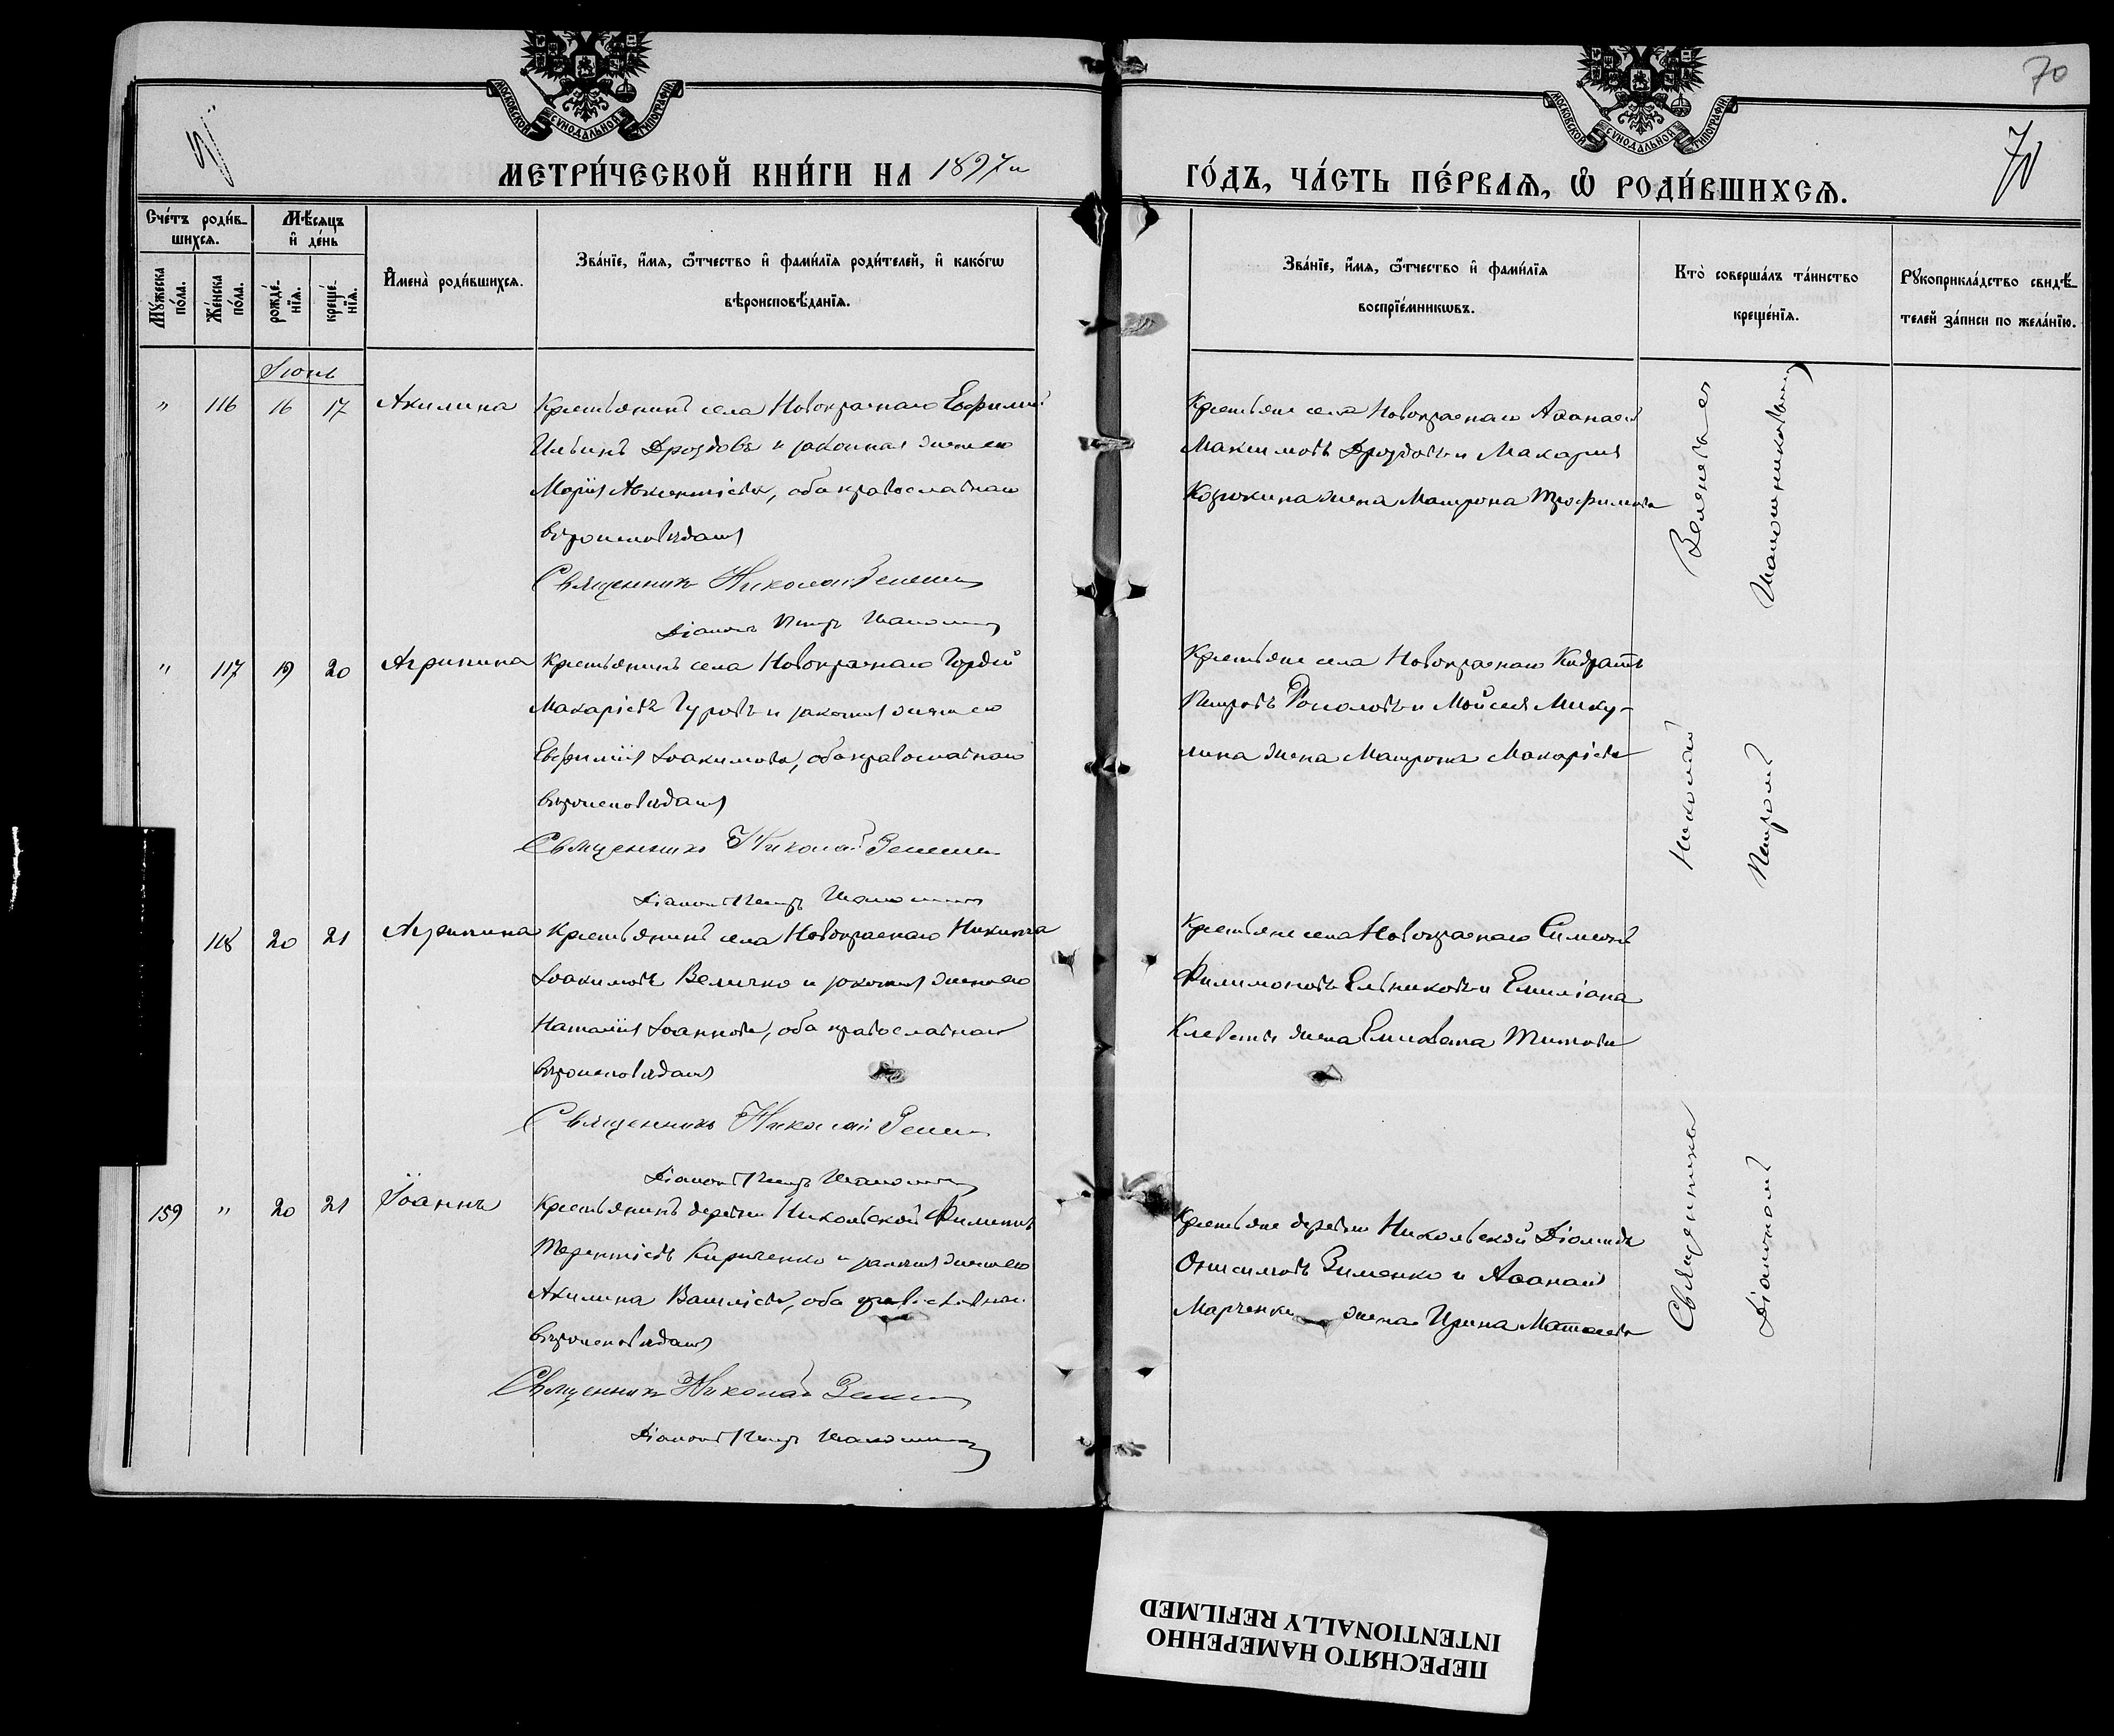 70
70
МОСКОВСКОЙ СѴНОДАЛЬНОЙ ТИПОГРАФІИ
МОСКОВСКОЙ СѴНОДАЛЬНОЙ ТИПОГРАФІИ
МЕТРИ́ЧЕСКОЙ КНИ́ГИ НА 1897 й
ГО́ДЪ, ЧА́СТЬ ПЕ́РВАѦ, Ѡ҆ РОДИ́ВШИХСѦ.
Сче́тъ роди́в-
шихсѧ.
Мѣ́сѧцъ
и҆ де́нь
Мꙋ́жеска
по́ла.
Же́нска
по́ла.
рожде́-
нїѧ.
креще́-
нїѧ.
И҆мена̀ роди́вшихсѧ.
Зва́нїе, и҆́мѧ, ѻ҆́тчество и҆ фами́лїѧ роди́телей, и҆ како́гѡ
вѣроисповѣ́данїѧ.
Зва́нїе, и҆́мѧ, ѻ҆́тчество и҆ фами́лїѧ
воспрїе́мникѡвъ.
Кто̀ соверша́лъ та́инство
креще́нїѧ.
Рꙋкоприкла́дство свидѣ́-
телей за́писи по жела́нїю.
Іюнь
" 116 16 17 Акилина
Крестьянинъ села Новокраснаго Евфимій
Ильинъ Дроздовъ и законная жена его
Марія Авксентіева, оба православнаго
вѣроисповѣданія
Священникъ Николай
Діаконъ Петръ
Крестьяне села Новокраснаго Аѳанасій
Максимовъ Дроздовъ и Макарія
жена Матрона Трофимова
" 117 19 20 Агрипина
Крестьянинъ села Новокраснаго Гордій
Макаріевъ Гуровъ и законная жена его
Евфимія Іоакимова, оба православнаго
вѣроисповѣданія
Священникъ Николай
Діаконъ Петръ
Крестьяне села Новокраснаго Кодратъ
Петровъ и Мойсея Мику-
лина жена Матрона Макаріева
118 20 21 Агрипина
Крестьянинъ села Новокраснаго Никита
Іоакимовъ Величко и законная жена его
Наталія Іоаннова, оба православнаго
вѣроисповѣданія
Священникъ Николай
Діаконъ Петръ
Крестьяне села Новокраснаго Симеонъ
Филимоновъ Ельниковъ и Емиліана
жена Елисавета Титова
159 " 20 21 Іоаннъ
Крестьянинъ деревни Никольской Филиппъ
Терентіевъ Кириченко и законная жена его
Акилина Василіева, оба православнаго
вѣроисповѣданія
Священникъ Николай
Діаконъ Петръ
Крестьяне деревни Никольской Діомидъ
Онисимовъ Зименко и Аѳанасія
Марченки жена Ирина Матѳеева
Священникъ Николай
Діакономъ Петромъ
ПЕРЕСНЯТО НАМЕРЕННО
INTENTIONALLY REFILMED